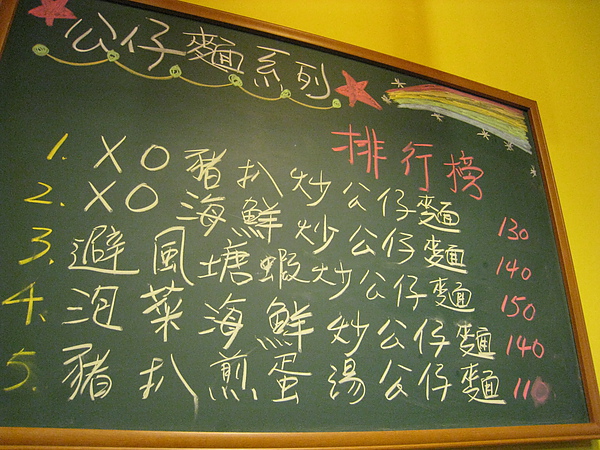 公仔麵系列
排行榜
1. XO豬扒炒公仔麵 130
2. XO海鮮炒公仔麵 140
3. 避風塘蝦炒公仔麵 150
4. 泡菜海鮮炒公仔麵 140
5. 豬扒煎蛋湯公仔麵 110